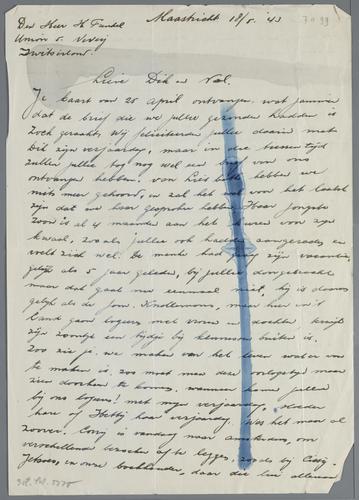 Den Heer H. Fundel
Maastricht 18/5. '43
Union 5. Vevey
Zwitserland.
Lieve Dik en Nel.
Je kaart van 26 April ontvangen. wat jammer
dat de brief die we jullie gezonden hadden is
zoek geraakt. Wij feliciteerden jullie daarin met
Dik zijn verjaardag, maar in die tussen tijd
zullen jullie tog nog wel een brief van ons
ontvangen hebben. van hebben we
niets meer gehoord, en zal het wel voor het laatst
zijn dat we haar gesproken hebben. Haar jongste
zoon is al 4 maanden aan het voor zijn
kwaal, zoo als jullie ook hadden aangeraden en
voelt zich wel. De mente had zijn vacantie
gelijk als 5 jaar geleden, bij jullie
maar dat gaat nu eenmaal niet, hij is
gelijk als de fam. maar hier in 't
land gaan logeren met vrouw en dochter
zijn zoontje een tijdje bij kennissen buiten is.
Zoo zie je. we maken van het leven wat er van
te maken is. zoo moet men deze oorlogstijd maar
zien door heen te komen. wanneer kunnen jullie
bij ons logeren! met mijn verjaardag,
hare of Hetty haar verjaardag. Was het maar al
zoover. Conny is vandaag naar Amsterdam, om
verschillende bezoeken af te leggen, zoo als bij
en onze boekhouder, daar die hier alleman